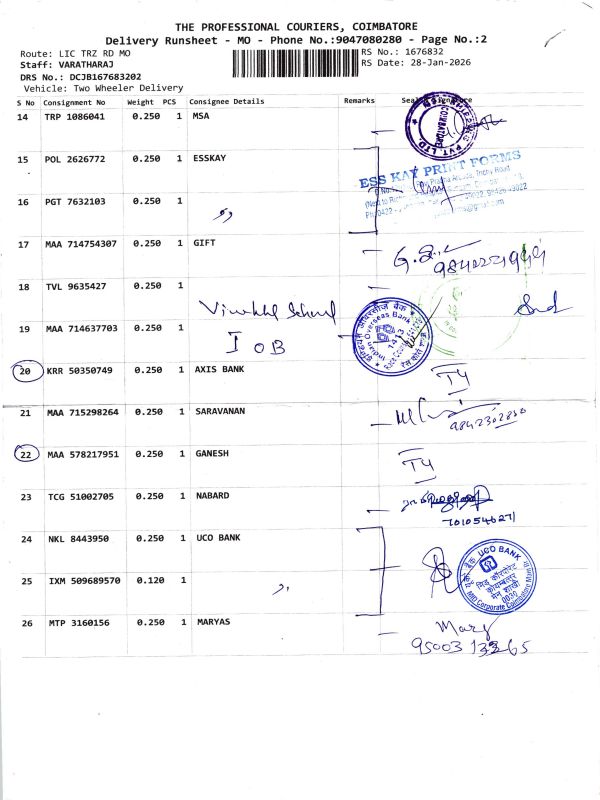 THE PROFESSIONAL COURIERS, COIMBATORE
Delivery Runsheet - MO - Phone No.:9047080280 - Page No.:2
Route: LIC TRZ RD MO
RS No.: 1676832
Staff: VARATHARAJ
RS Date: 28-Jan-2026
DRS No.: DCJB167683202
Vehicle: Two Wheeler Delivery
S No Consignment No Weight PCS Consignee Details Remarks Seal Signature
14 TRP 1086041 0.250 1 MSA
COIMBATORE
PVT. LTD
15 POL 2626772 0.250 1 ESSKAY
ESS KAY PRINT FORMS
16 PGT 7632103 0.250 1 ,,
17 MAA 714754307 0.250 1 GIFT
18 TVL 9635427 0.250 1
19 MAA 714637703 0.250 1 IOB
Overseas Bank
20 KRR 50350749 0.250 1 AXIS BANK
21 MAA 715298264 0.250 1 SARAVANAN
9842302850
22 MAA 578217951 0.250 1 GANESH
23 TCG 51002705 0.250 1 NABARD
7010546271
24 NKL 8443950 0.250 1 UCO BANK
UCO BANK
25 IXM 509689570 0.120 1 ,,
मिड कॉरपोरेट
कोयम्बतूर
मेन शाखी
Mid Corporate Coimbatore Main
26 MTP 3160156 0.250 1 MARYAS
Mary